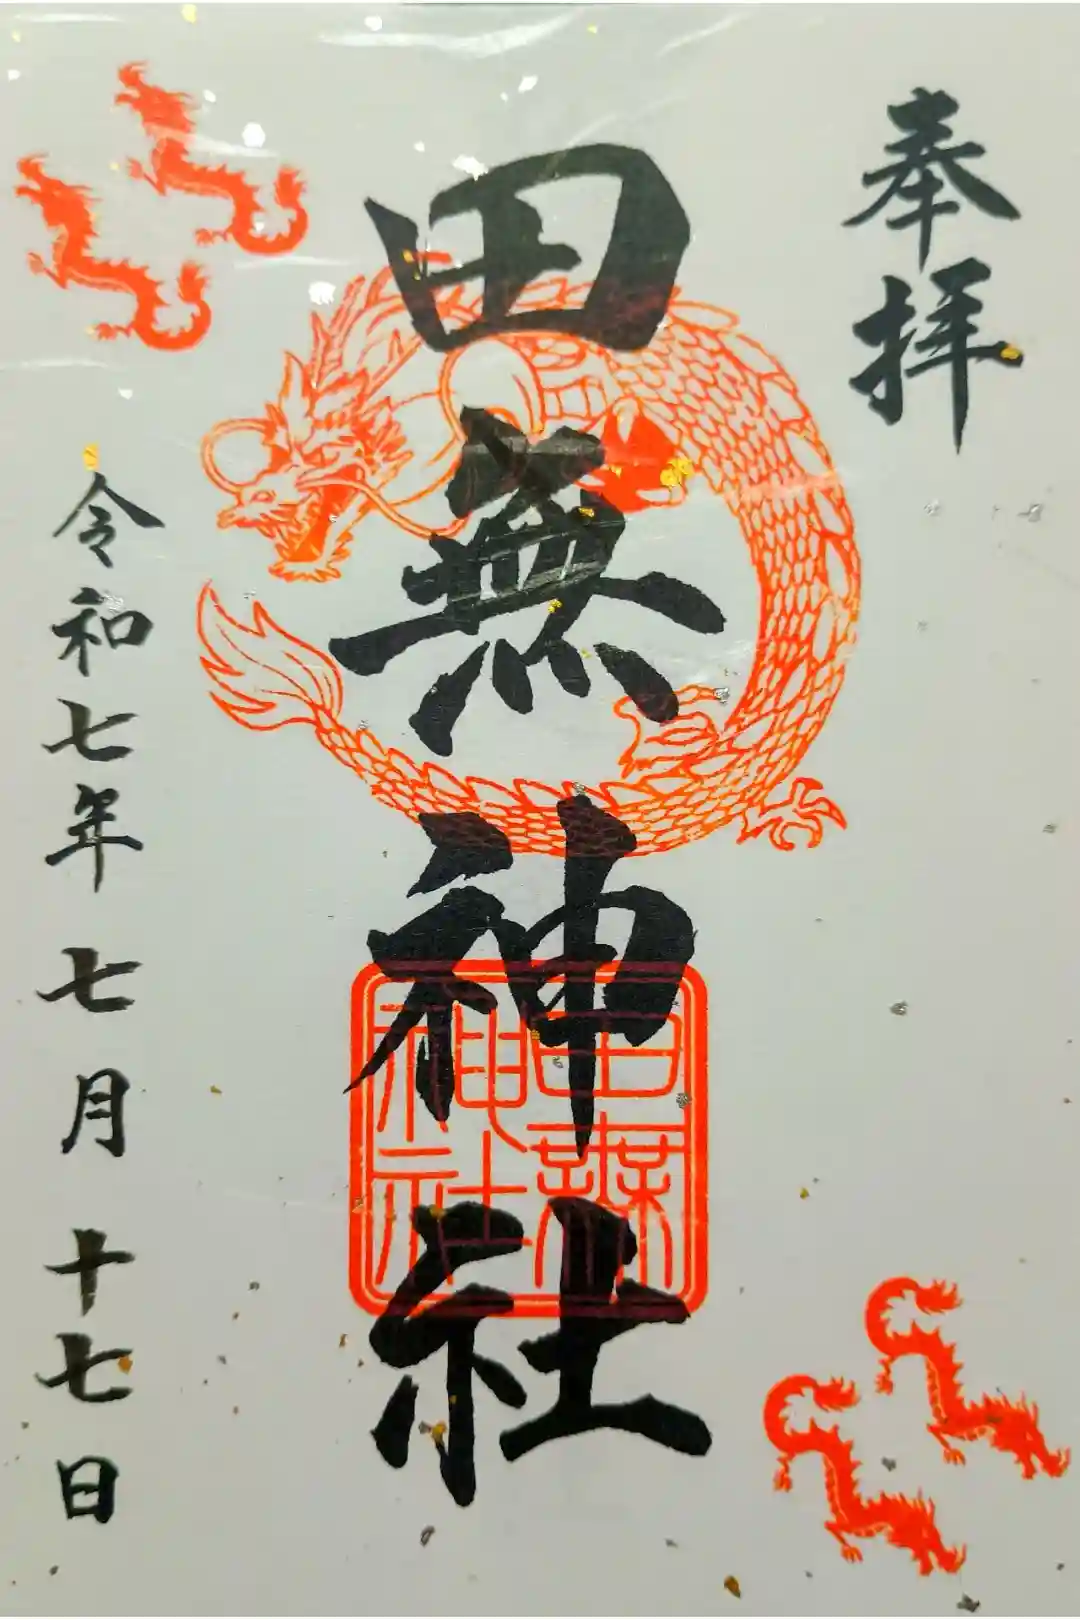 奉拝
田無神社
田無神社
令和七年七月十七日